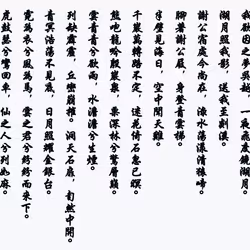 欲因之夢吳越，一夜飛度鏡湖
湖月照我影，送我至剡溪。
謝公宿處今尚在，淥水蕩漾清猿啼。
腳著謝公屐，身登青雲梯。
半壁見海日，空中聞天雞。
千巖萬轉路不定，迷花倚石忽已暝。
熊咆龍吟殷巖泉，栗深林兮驚層巔。
雲青青兮欲雨，水澹澹兮生煙。
列缺霹靂，丘巒崩摧。洞天石扉，訇然中開。
青冥浩蕩不見底，日月照耀金銀臺。
霓為衣兮風為馬，雲之君兮紛紛而來下。
虎鼓瑟兮鸞回車，仙之人兮列如麻。